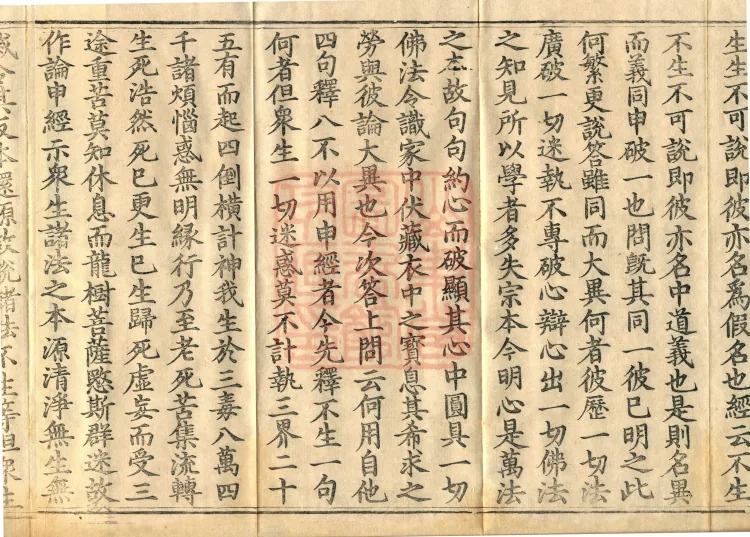 生生不可說即彼亦名爲假名也經云不生
不生不可說即彼亦名中道義也是則名異
而義同申破一也問旣其同一彼巳明之此
何繁更說答雖同而大異何者彼歷一切法
廣破一切迷執不專破心辯心出一切佛法
之知見所以學者多失宗本今明心是萬法
之本故句句約心而破顯其心中圓具一切
佛法令識家中伏藏衣中之寶息其希求之
勞與彼論大異也今次答上問云何用自他
四句釋八不以用申經者今先釋不生一句
何者但衆生一切迷惑莫不計執三界二十
五有而起四倒橫計神我生於三毒八萬四
千諸煩惱惑無明緣行乃至老死苦集流轉
生死浩然死巳更生巳生歸死虛妄而受三
途重苦莫知休息而龍樹菩薩愍斯群迷故
作論申經示衆生諸法之本源清淨無生無
本還源故說諸法不生等但衆生